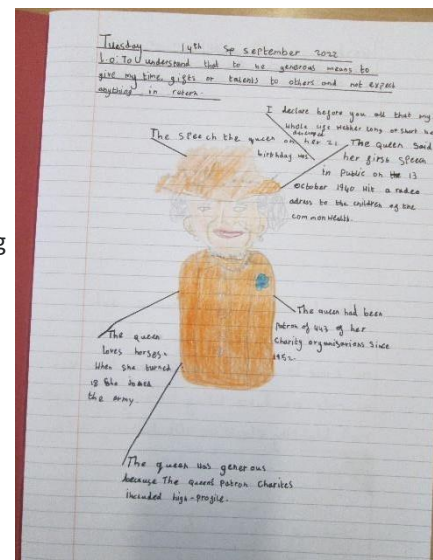 Tuesday 14th Sep september 2022
L.O: To understand that to be generous means to
give my time, gifts or talents to others and not expect
anything in return.
I declare before you all that my
whole life wether long or short be
The speech the queen on her 21
birthday was
The Queen said
her first speech
in public on 13
october 1940 Hit a radeo
adress to the children of the
common wealth.
The queen had been
patron of 443 of her
charity organisations since
1952.
The queen
loves horses.
When she turned
18 she joined
the army.
The queen was generous
because The queens patron charites
included high-profile.
g